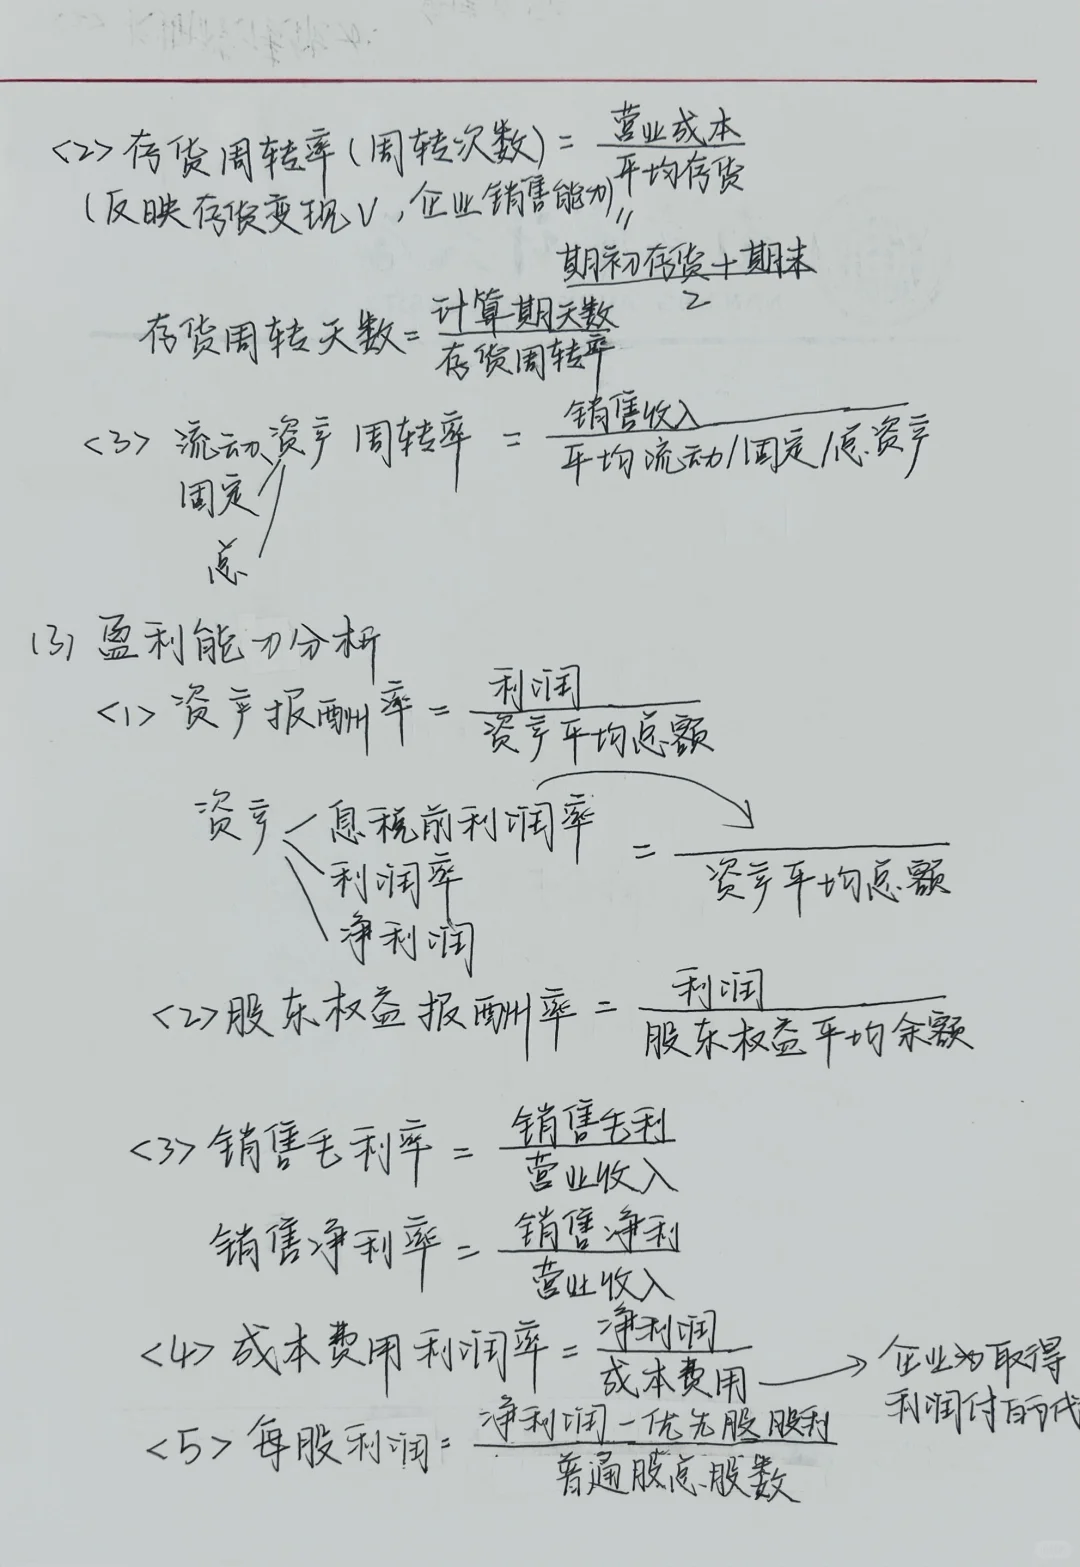 <2>存货周转率(周转次数)=营业成本/平均存货
(反映存货变现V,企业销售能力)
=
期初存货+期末/2
存货周转天数=计算期天数/存货周转率
<3>流动资产周转率=销售收入/平均流动/固定/总资产
固定
总
(3)盈利能力分析
<1>资产报酬率=利润/资产平均总额
资产 息税前利润率
利润率
净利润
= /资产平均总额
<2>股东权益报酬率=利润/股东权益平均余额
<3>销售毛利率=销售毛利/营业收入
销售净利率=销售净利/营业收入
<4>成本费用利润率=净利润/成本费用→企业为取得
利润付百代
<5>每股利润=净利润-优先股股利/普通股总股数